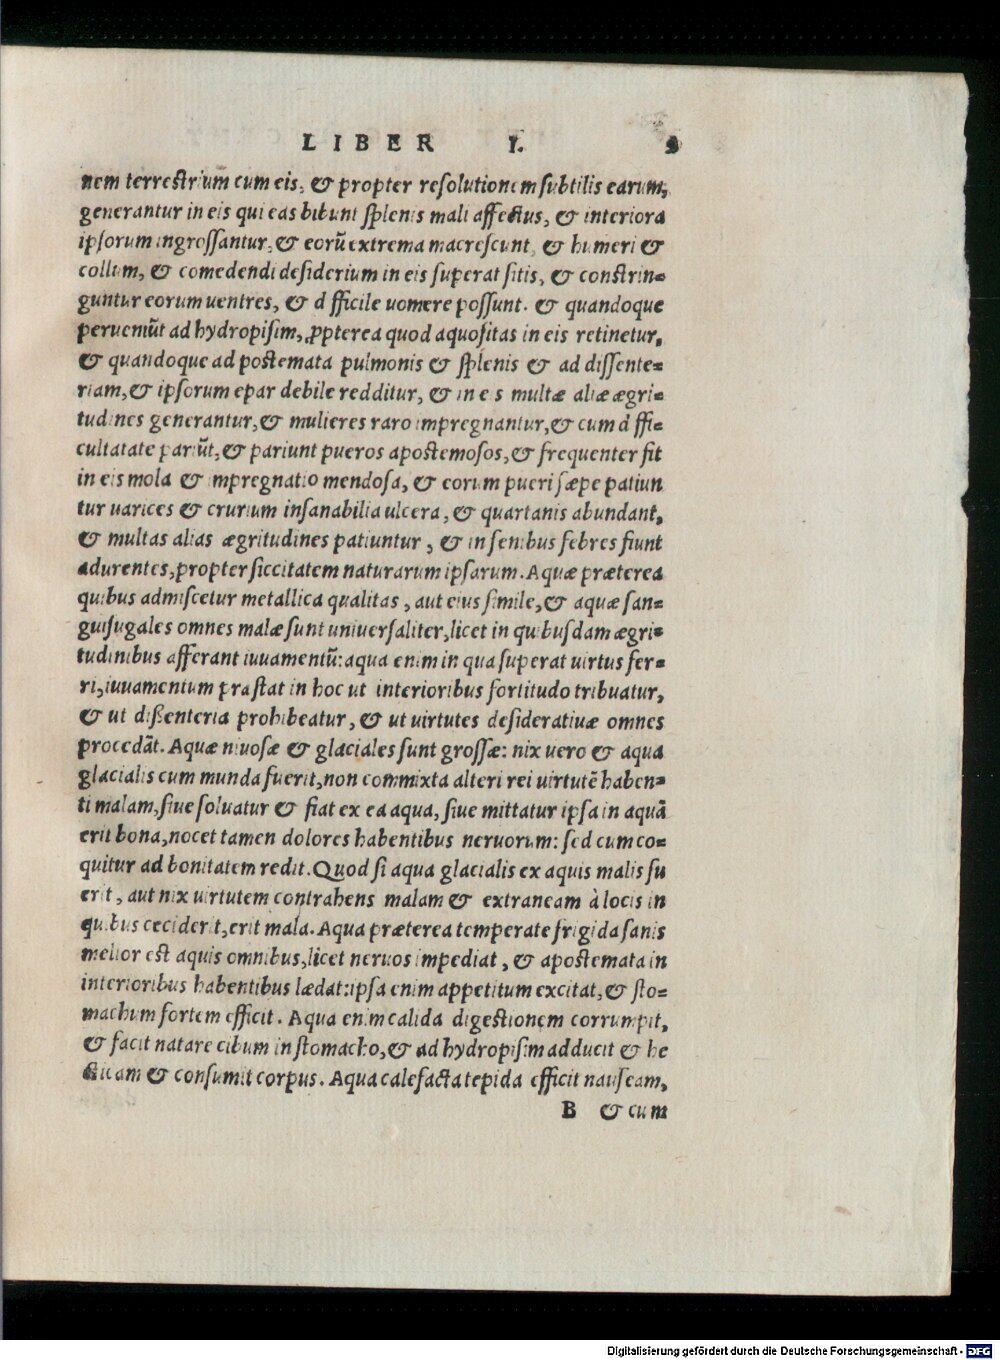 LIBER I. 9
nem terrestrium cum eis, & propter resolutionem subtilis earum,
generantur in eis qui eas bibunt splenis mali affectus, & interiora
ipsorum ingrossantur, & eorũ extrema macrescunt, & humeri &
collum, & comedendi desiderium in eis superat sitis, & constrin=
guntur eorum uentres, & difficile uomere possunt. & quandoque
perueniũt ad hydropisim, ꝓpterea quod aquositas in eis retinetur,
& quandoque ad postemata pulmonis & splenis & ad dissente=
riam, & ipsorum epar debile redditur, & in eis multæ aliæ ægri=
tudines generantur, & mulieres raro impregnantur, & cum diffi=
cultatate pariũt, & pariunt pueros apostemosos, & frequenter fit
in eis mola & impregnatio mendosa, & eorum pueri sæpe patiun
tur uarices & crurium insanabilia ulcera, & quartanis abundant,
& multas alias ægritudines patiuntur, & in senibus febres fiunt
adurentes, propter siccitatem naturarum ipsarum. Aquæ præterea
quibus admiscetur metallica qualitas, aut eius simile, & aquæ san=
guisugales omnes malæ sunt uniuersaliter, licet in quibusdam ægri=
tudinibus afferant iuuamentũ: aqua enim in qua superat uirtus fer=
ri, iuuamentum præstat in hoc ut interioribus fortitudo tribuatur,
& ut dissenteria prohibeatur, & ut uirtutes desideratiuæ omnes
procedãt. Aquæ niuosæ & glaciales sunt grossæ: nix uero & aqua
glacialis cum munda fuerit, non commixta alteri rei uirtutẽ haben=
ti malam, siue soluatur & fiat ex ea aqua, siue mittatur ipsa in aquã
erit bona, nocet tamen dolores habentibus neruorum: sed cum co=
quitur ad bonitatem redit. Quod si aqua glacialis ex aquis malis fu
erit, aut nix uirtutem contrahens malam & extraneam à locis in
quibus ceciderit, erit mala. Aqua præterea temperate frigida sanis
melior est aquis omnibus, licet neruos impediat, & apostemata in
interioribus habentibus lædat: ipsa enim appetitum excitat, & sto=
machum fortem efficit. Aqua enim calida digestionem corrumpit,
& facit natare cibum in stomacho, & ad hydropisim adducit & he
cticam & consumit corpus. Aqua calefacta tepida efficit nauseam,
B & cum
Digitalisierung gefördert durch die Deutsche Forschungsgemeinschaft - DFG